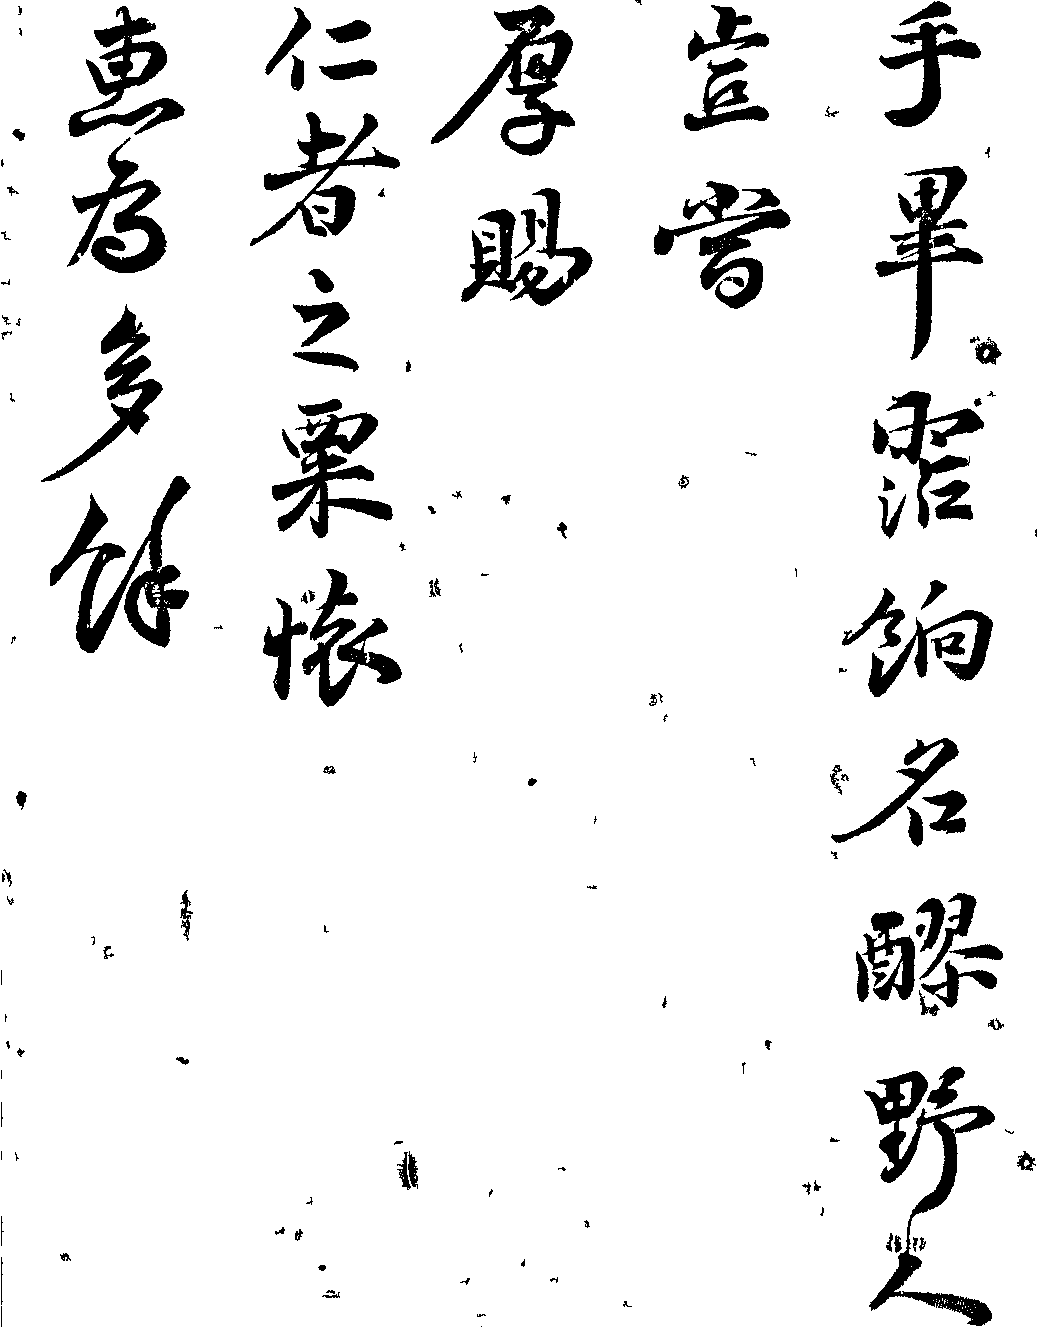 手畢霑餉名醪野人
豈嘗
厚賜
仁者之粟懷
惠為多餘